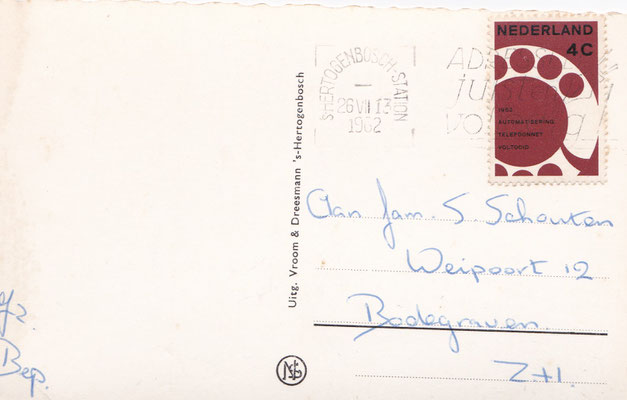 NEDERLAND
4C
1962
AUTOMATISERING
TELEFOONNET
VOLTOOID
'S-HERTOGENBOSCH-STATION
26 VII 13
1962
Uitg. Vroom & Dreesmann 's-Hertogenbosch
Aan Fam. S. Schouten
Weipoort 12
Bodegraven.
Z-H.
Bep.